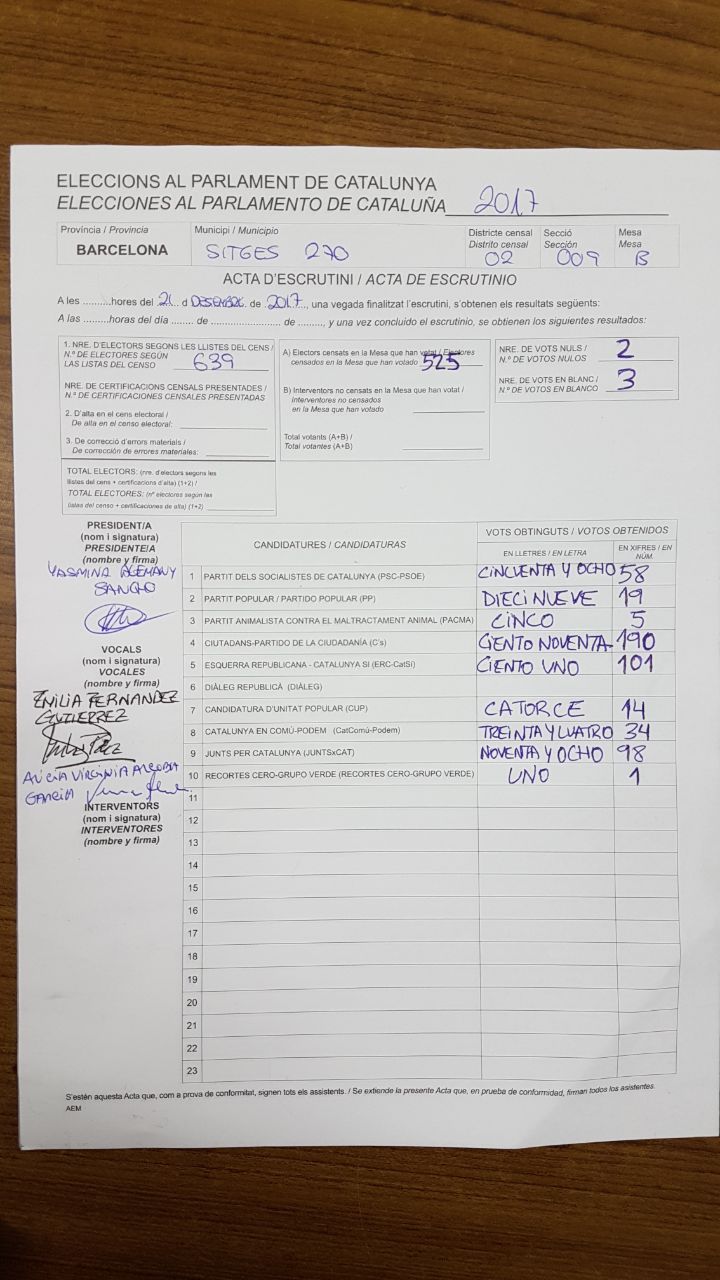 ELECCIONS AL PARLAMENT DE CATALUNYA
ELECCIONES AL PARLAMENTO DE CATALUÑA 2017
Província / Provincia
BARCELONA
Municipi / Municipio
SITGES 270
Districte censal
Distrito censal
02
Secció
Sección
009
Mesa
Mesa
B
ACTA D'ESCRUTINI / ACTA DE ESCRUTINIO
A les .........hores del 21 d DESEMBRE de 2017, una vegada finalitzat l'escrutini, s'obtenen els resultats següents:
A las .........horas del día ....... de ....................... de ........, y una vez concluido el escrutinio, se obtienen los siguientes resultados:
1. NRE. D'ELECTORS SEGONS LES LLISTES DEL CENS /
N.º DE ELECTORES SEGÚN
LAS LISTAS DEL CENSO 639
NRE. DE CERTIFICACIONS CENSALS PRESENTADES /
N.º DE CERTIFICACIONES CENSALES PRESENTADAS
2. D'alta en el cens electoral /
De alta en el censo electoral:
3. De correcció d'errors materials /
De corrección de errores materiales:
TOTAL ELECTORS: (nre. d'electors segons les
llistes del cens + certificacions d'alta) (1+2) /
TOTAL ELECTORES: (nº electores según las
listas del censo + certificaciones de alta) (1+2)
A) Electors censats en la Mesa que han votat / Electores
censados en la Mesa que han votado 525
B) Interventors no censats en la Mesa que han votat /
Interventores no censados
en la Mesa que han votado
Total votants (A+B) /
Total votantes (A+B)
NRE. DE VOTS NULS /
N.º DE VOTOS NULOS 2
NRE. DE VOTS EN BLANC /
N.º DE VOTOS EN BLANCO 3
PRESIDENT/A
(nom i signatura)
PRESIDENTE/A
(nombre y firma)
YASMINA ALEMANY
SANCHO
VOCALS
(nom i signatura)
VOCALES
(nombre y firma)
EMILIA FERNANDEZ
GUTIERREZ
ALICIA VIRGINIA
GARCIA
INTERVENTORS
(nom i signatura)
INTERVENTORES
(nombre y firma)
CANDIDATURES / CANDIDATURAS
VOTS OBTINGUTS / VOTOS OBTENIDOS
EN LLETRES / EN LETRA
EN XIFRES / EN
NÚM.
1 PARTIT DELS SOCIALISTES DE CATALUNYA (PSC-PSOE) CINCUENTA Y OCHO 58
2 PARTIT POPULAR / PARTIDO POPULAR (PP) DIECINUEVE 19
3 PARTIT ANIMALISTA CONTRA EL MALTRACTAMENT ANIMAL (PACMA) CINCO 5
4 CIUTADANS-PARTIDO DE LA CIUDADANÍA (C's) CIENTO NOVENTA 190
5 ESQUERRA REPUBLICANA - CATALUNYA SÍ (ERC-CatSí) CIENTO UNO 101
6 DIÀLEG REPUBLICÀ (DIÀLEG)
7 CANDIDATURA D'UNITAT POPULAR (CUP) CATORCE 14
8 CATALUNYA EN COMÚ-PODEM (CatComú-Podem) TREINTA Y CUATRO 34
9 JUNTS PER CATALUNYA (JUNTSxCAT) NOVENTA Y OCHO 98
10 RECORTES CERO-GRUPO VERDE (RECORTES CERO-GRUPO VERDE) UNO 1
11
12
13
14
15
16
17
18
19
20
21
22
23
S'estén aquesta Acta que, com a prova de conformitat, signen tots els assistents. / Se extiende la presente Acta que, en prueba de conformidad, firman todos los asistentes.
AEM